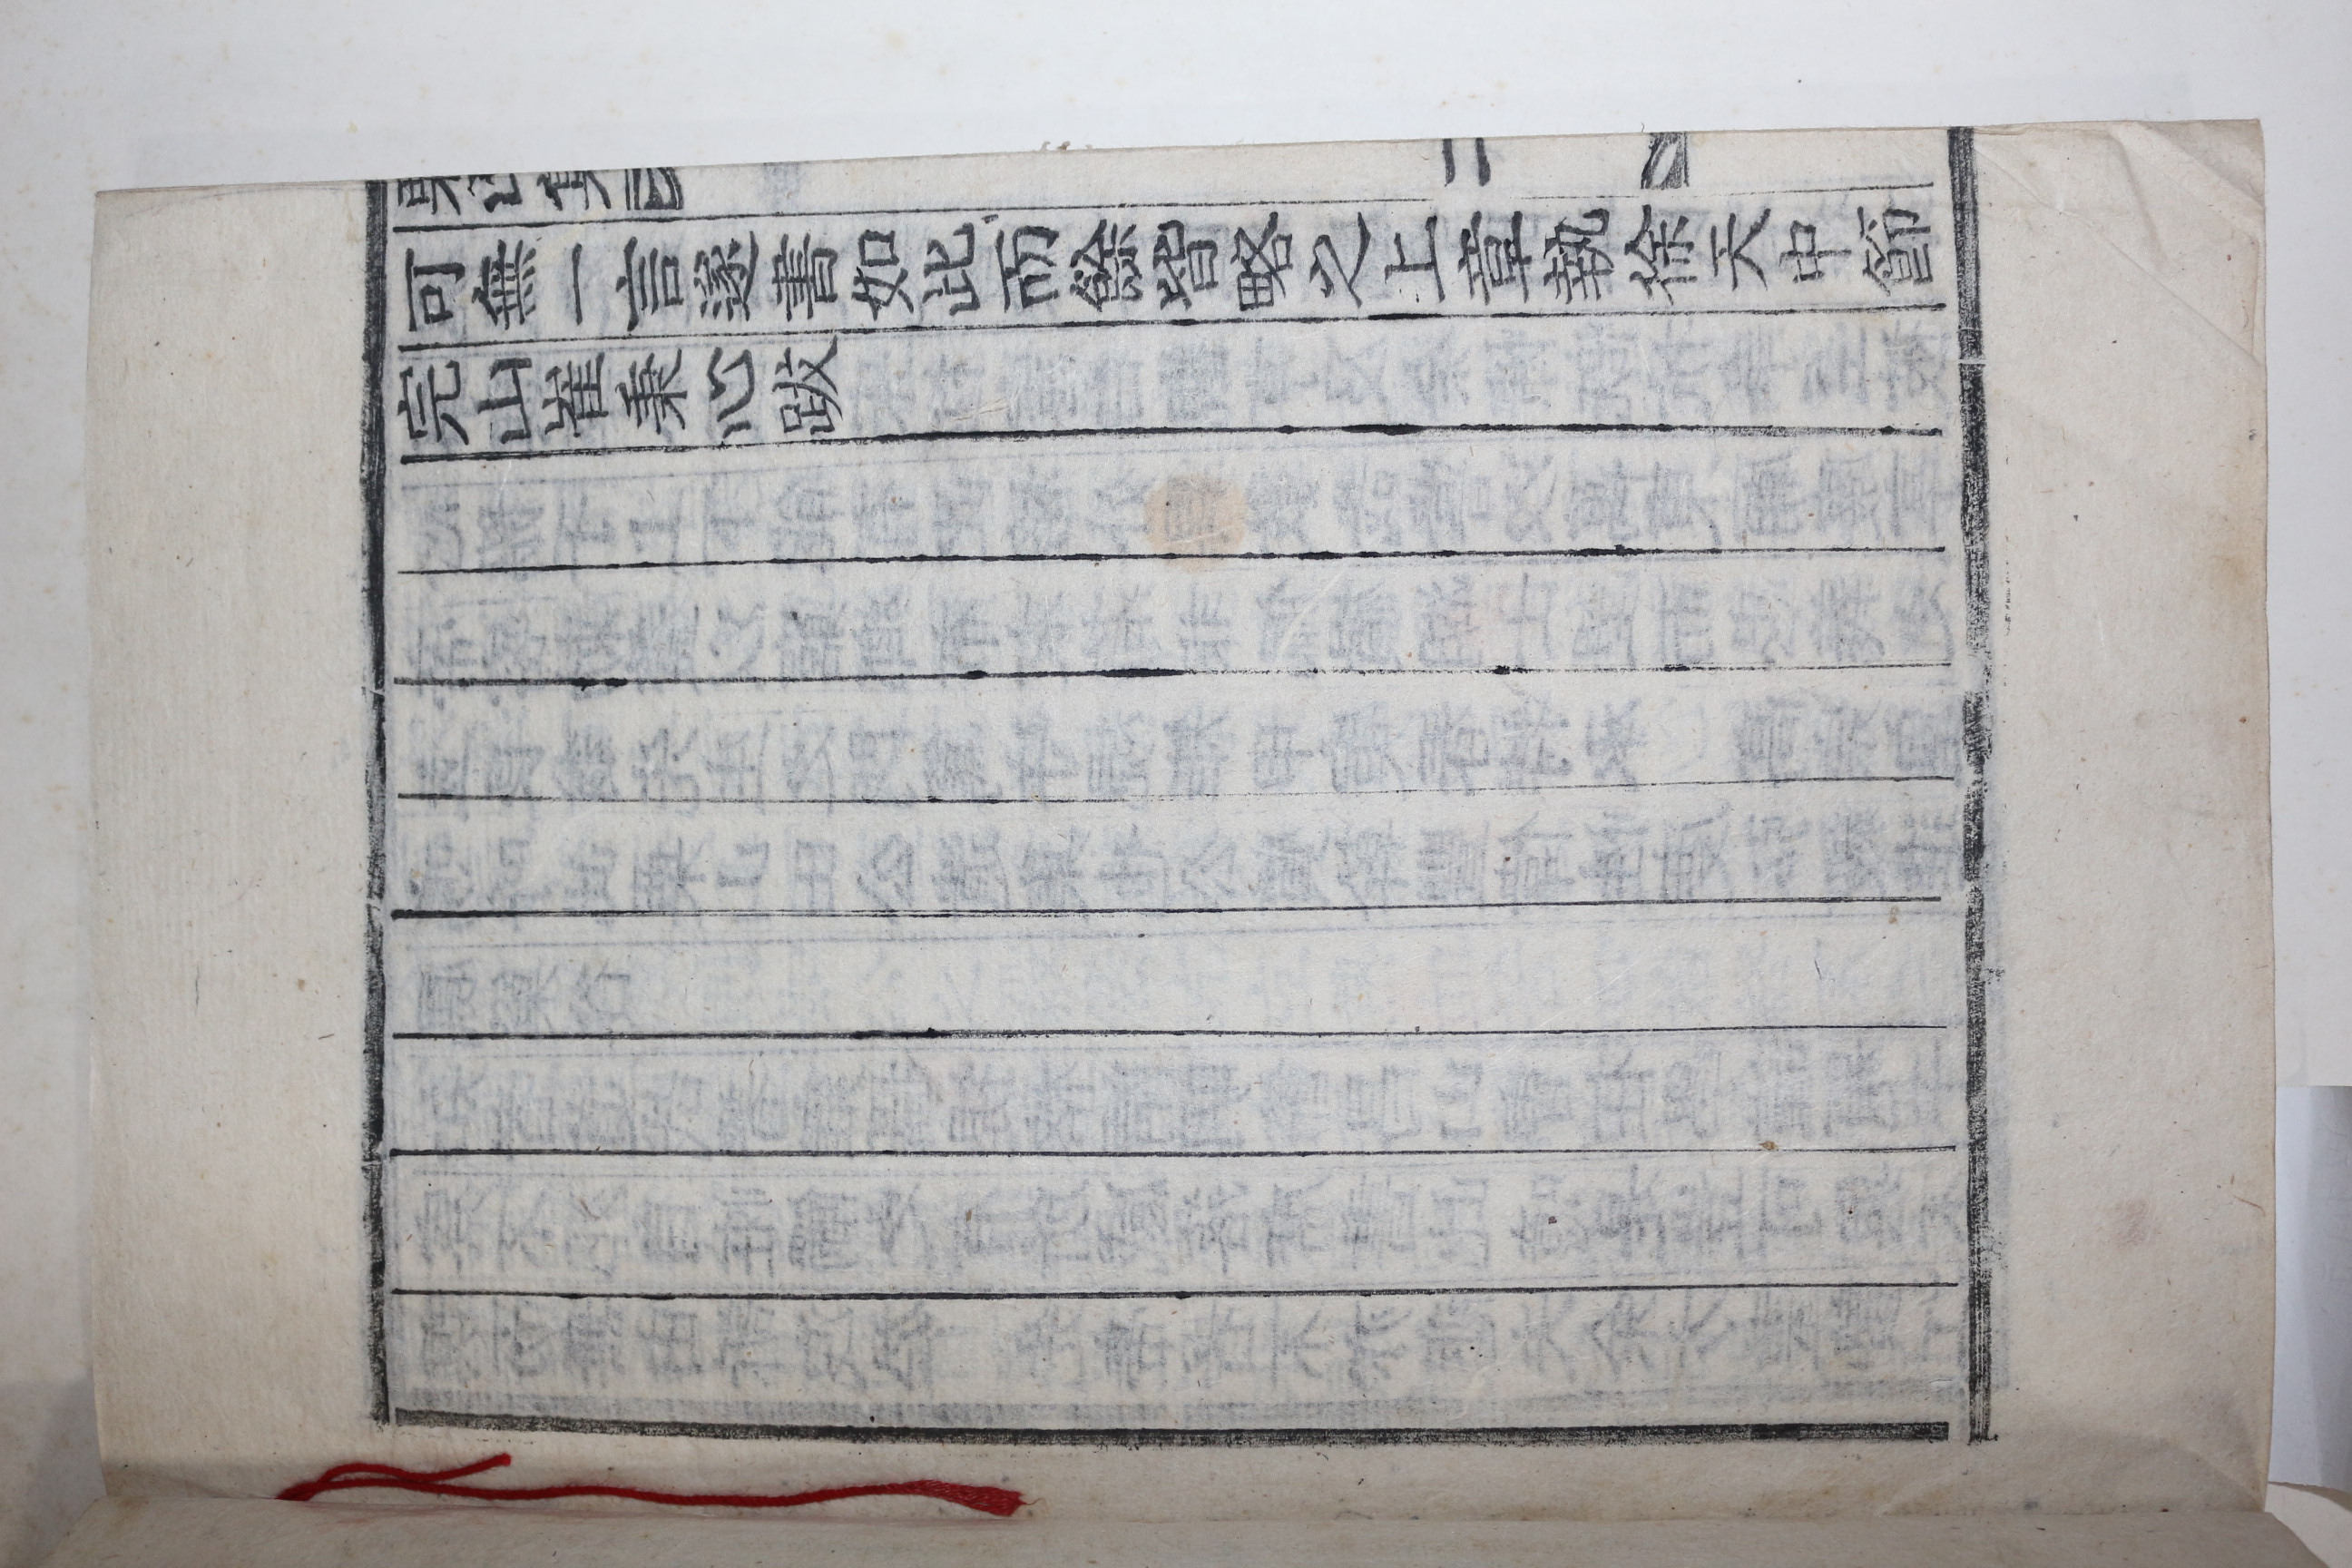 可無一言遂書如此而餘皆略之上章執徐天中節
完山崔秉心跋
二